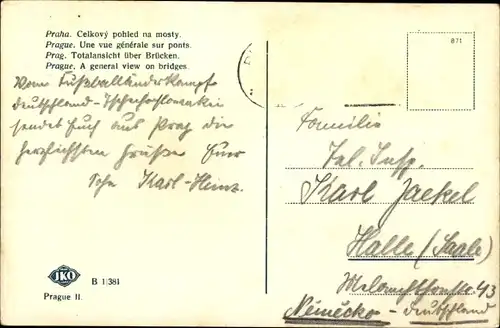 Praha. Celkový pohled na mosty.
Prague. Une vue générale sur ponts.
Prag. Totalansicht über Brücken.
Prague. A general view on bridges.
Vom Fußballländerkampf
Deutschland-Tschechoslowakei
sendet Euch aus Prag die
herzlichsten Grüße Euer
Sohn Karl-Heinz.
871
Familie
Tel. Insp.
Karl Jaekel
Halle (Saale)
Melanchthonstr. 43
Německo - Deutschland
JKO
B 1|381
Prague II.